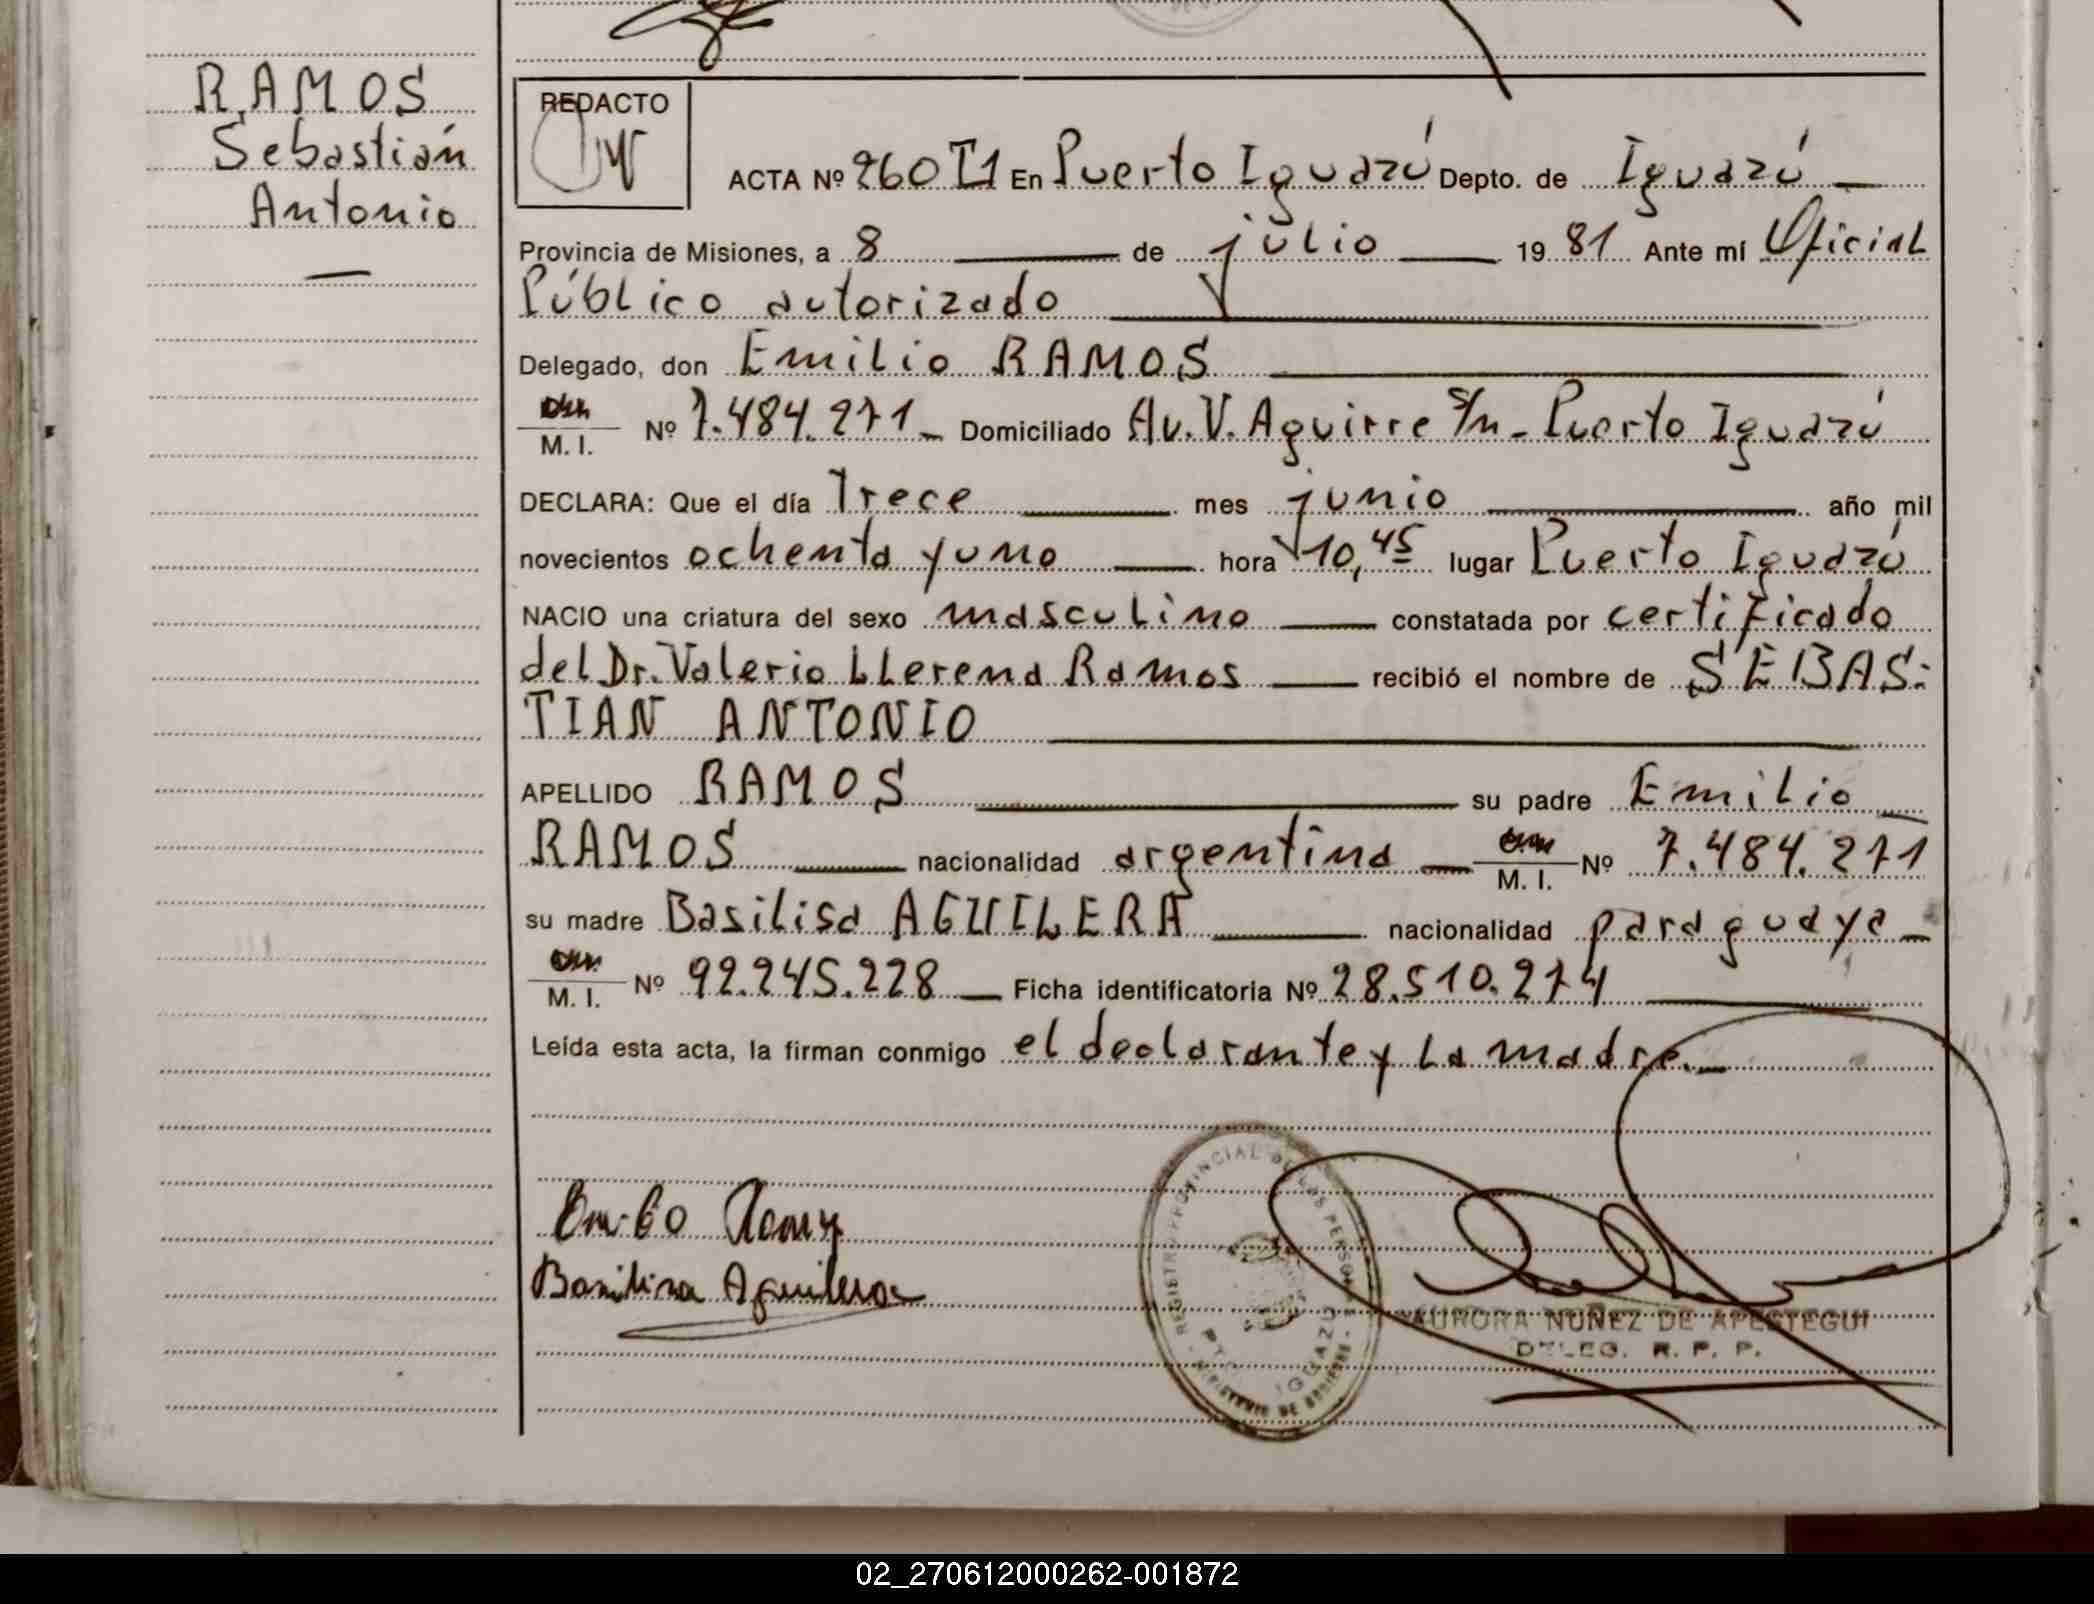 RAMOS
Sebastián
Antonio
REDACTO
ACTA Nº 260 T1 En Puerto Iguazú Depto. de Iguazú
Provincia de Misiones, a 8 de julio 1981 Ante mí Oficial
Público autorizado
Delegado, don Emilio RAMOS
M. I. Nº 7.484.271 Domiciliado Av. V. Aguirre S/n - Puerto Iguazú
DECLARA: Que el día Trece mes junio año mil
novecientos ochenta y uno hora 10,45 lugar Puerto Iguazú
NACIO una criatura del sexo masculino constatada por certificado
del Dr. Valerio LLerena Ramos recibió el nombre de SEBAS-
TIAN ANTONIO
APELLIDO RAMOS su padre Emilio
RAMOS nacionalidad argentina M. I. Nº 7.484.271
su madre Basilisa AGUILERA nacionalidad paraguaya
M. I. Nº 92.245.228 Ficha identificatoria Nº 28.510.274
Leída esta acta, la firman conmigo el declarante y la madre.
Emilio Ramos
Basilisa Aguilera
REGISTRO PROVINCIAL DE LAS PERSONAS
PTO. IGUAZU
MINISTERIO DE GOBIERNO
AURORA NUÑEZ DE APESTEGUI
DELEG. R. P. P.
02_270612000262-001872